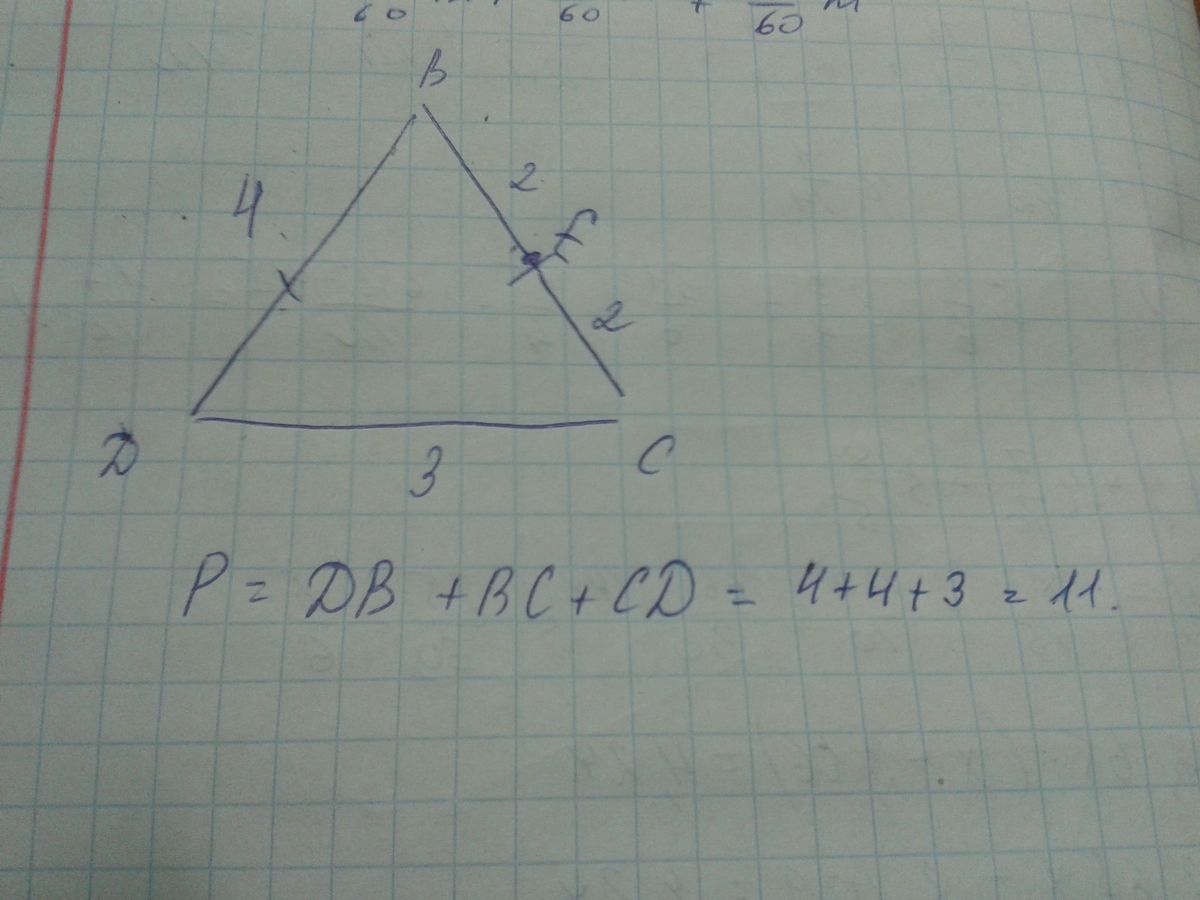 60 60 + 60 м
B
4 2
f
2
D 3 C
P = DB + BC + CD = 4+4+3 = 11.